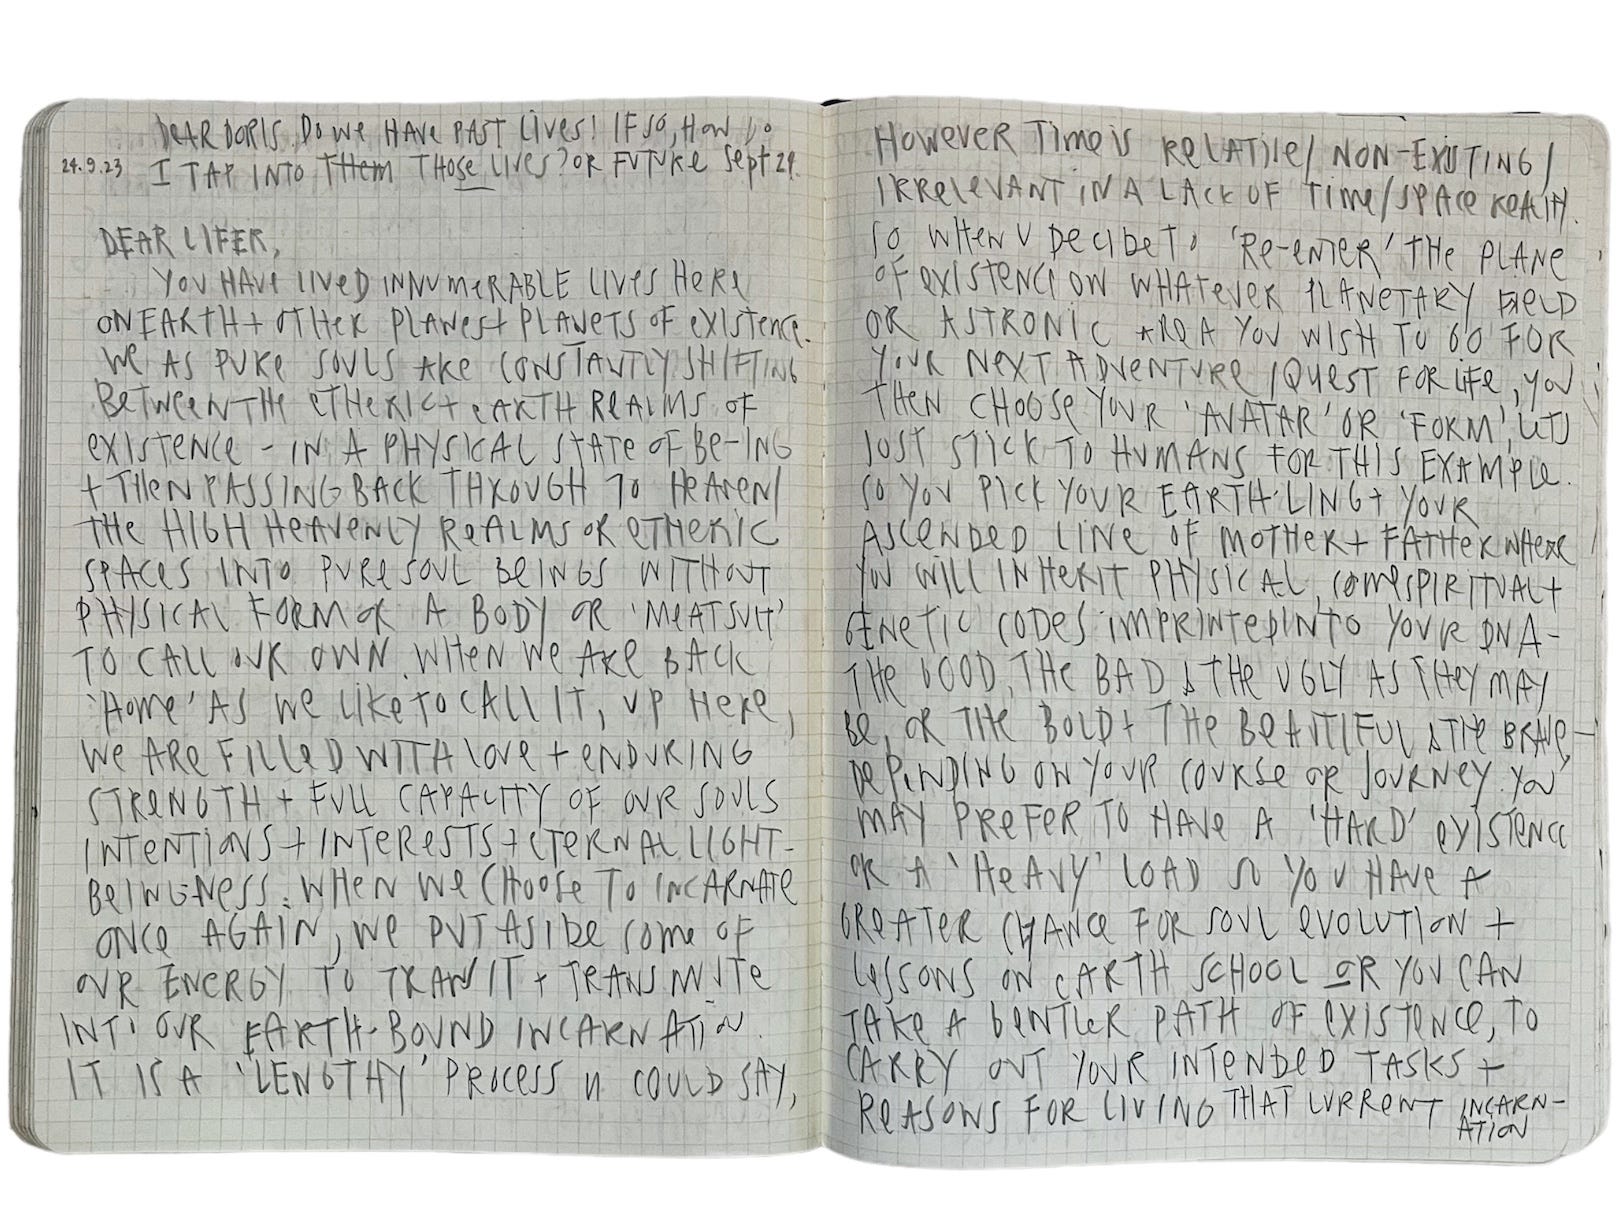 DEAR DORIS. DO WE HAVE PAST LIVES! IF SO, HOW DO
24.9.23 I TAP INTO THEM THOSE LIVES? OR FUTURE Sept 24.
DEAR LIFER,
YOU HAVE LIVED INNUMERABLE LIVES HERE
ON EARTH + OTHER PLANES + PLANETS OF EXISTENCE.
WE AS PURE SOULS ARE CONSTANTLY SHIFTING
BETWEEN THE ETHERIC + EARTH REALMS OF
EXISTENCE - IN A PHYSICAL STATE OF BE-ING
+ THEN PASSING BACK THROUGH TO HEAVEN/
THE HIGH HEAVENLY REALMS OR ETHERIC
SPACES INTO PURE SOUL BEINGS WITHOUT
PHYSICAL FORM OR A BODY OR 'MEATSUIT'
TO CALL OUR OWN. WHEN WE ARE BACK
'HOME' AS WE LIKE TO CALL IT, UP HERE,
WE ARE FILLED WITH LOVE + ENDURING
STRENGTH + FULL CAPACITY OF OUR SOULS
INTENTIONS + INTERESTS + ETERNAL LIGHT-
BEING-NESS. WHEN WE CHOOSE TO INCARNATE
ONCE AGAIN, WE PUT ASIDE SOME OF
OUR ENERGY TO TRANSIT + TRANSMUTE
INTO OUR EARTH-BOUND INCARNATION.
IT IS A 'LENGTHY' PROCESS U COULD SAY,
HOWEVER TIME IS RELATIVE/ NON-EXISTING/
IRRELEVANT IN A LACK OF TIME/SPACE REALITY.
SO WHEN U DECIDE TO 'RE-ENTER' THE PLANE
OF EXISTENCE ON WHATEVER PLANETARY FIELD
OR ASTRONIC AREA YOU WISH TO GO FOR
YOUR NEXT ADVENTURE / QUEST FOR LIFE, YOU
THEN CHOOSE YOUR 'AVATAR' OR 'FORM', LETS
JUST STICK TO HUMANS FOR THIS EXAMPLE.
SO YOU PICK YOUR EARTH-LING + YOUR
ASCENDED LINE OF MOTHER + FATHER WHERE
YOU WILL INHERIT PHYSICAL, SPIRITUAL +
GENETIC CODES IMPRINTED INTO YOUR DNA -
THE GOOD, THE BAD & THE UGLY AS THEY MAY
BE, OR THE BOLD + THE BEAUTIFUL & THE BRAVE -
DEPENDING ON YOUR COURSE OR JOURNEY. YOU
MAY PREFER TO HAVE A 'HARD' EXISTENCE
OR A 'HEAVY' LOAD SO YOU HAVE A
GREATER CHANCE FOR SOUL EVOLUTION +
LESSONS ON EARTH SCHOOL OR YOU CAN
TAKE A GENTLER PATH OF EXISTENCE, TO
CARRY OUT YOUR INTENDED TASKS +
REASONS FOR LIVING THAT CURRENT INCARN-
ATION